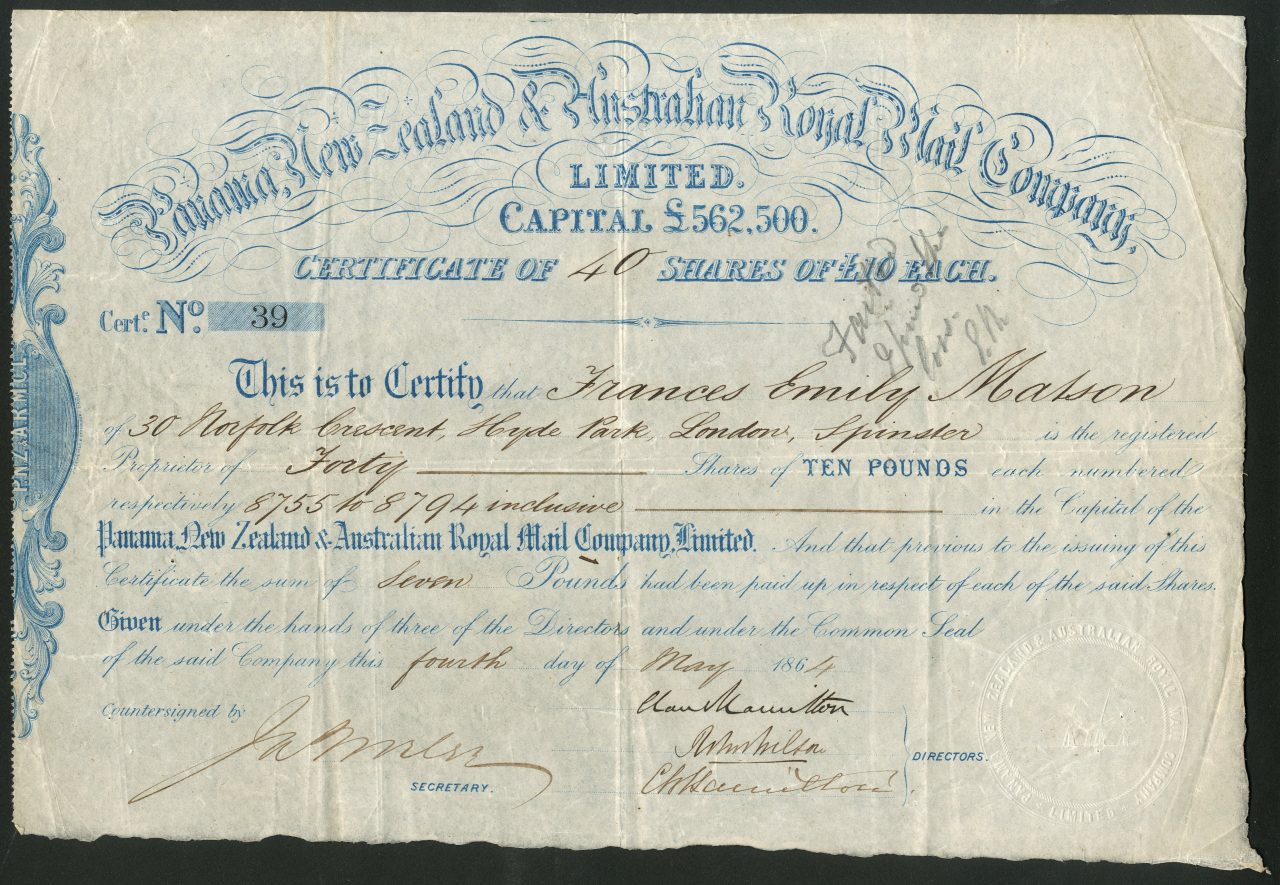 Panama, New Zealand & Australian Royal Mail Company,
LIMITED.
CAPITAL £562,500.
CERTIFICATE OF 40 SHARES OF £10 EACH.
Cert.e No. 39
This is to Certify that Frances Emily Matson
of 30 Norfolk Crescent, Hyde Park, London, Spinster is the registered
Proprietor of Forty Shares of TEN POUNDS each numbered
respectively 8755 to 8794 inclusive in the Capital of the
Panama, New Zealand & Australian Royal Mail Company, Limited. And that previous to the issuing of this
Certificate the sum of Seven Pounds had been paid up in respect of each of the said Shares.
Given under the hands of three of the Directors and under the Common Seal
of the said Company this fourth day of May 1864
Countersigned by
Hamilton
John Wilson
Hamilton
DIRECTORS.
SECRETARY.
P.N.Z.&A.R.M.C.L.
PANAMA NEW ZEALAND & AUSTRALIAN ROYAL MAIL COMPANY
LIMITED